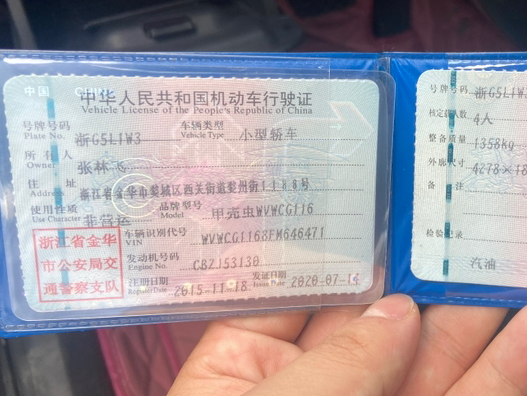 中国 CHINA
中华人民共和国机动车行驶证
Vehicle License of the People's Republic of China
号牌号码 浙G5L1W3 车辆类型 小型轿车
Plate No. Vehicle Type
所有人 张林飞
Owner
住址 浙江省金华市婺城区西关街道婺州街1186号
Address
使用性质 非营运 品牌型号 甲壳虫WVWCG116
Use Character Model
浙江省金华
市公安局交
通警察支队
车辆识别代号 WVWCG1168FM646471
VIN
发动机号码 CBZJ53130
Engine No.
注册日期 2015-11-18 发证日期 2020-07-14
Register Date Issue Date
号牌号码 浙G5L1W3
核定载人数 4人
整备质量 1358kg
外廓尺寸 4278×18
备注
检验记录
汽油